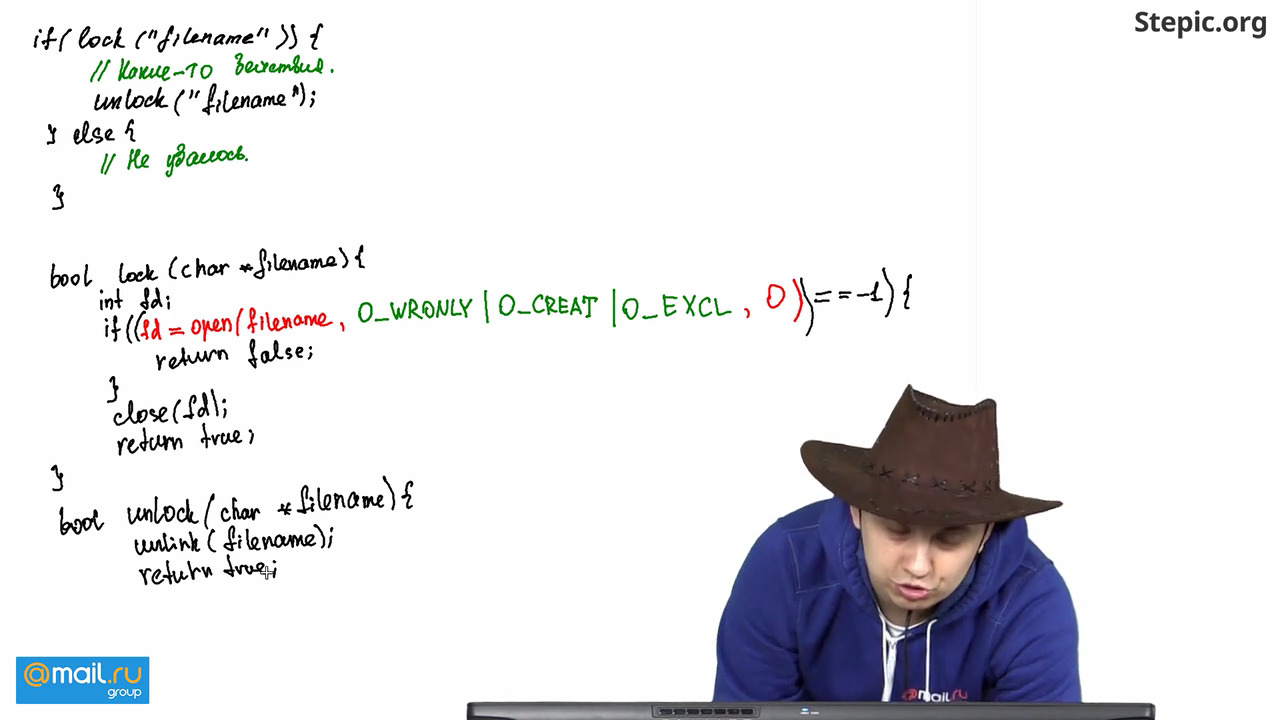 Stepic.org
if( lock ("filename" )) {
// Какие-то действия.
unlock ("filename");
} else {
// Не удалось.
}
bool lock (char *filename) {
int fd;
if((fd = open(filename, O_WRONLY | O_CREAT | O_EXCL, 0)) == -1) {
return false;
}
close(fd);
return true;
}
bool unlock (char *filename) {
unlink( filename);
return true;
@mail.ru
group
@mail.ru